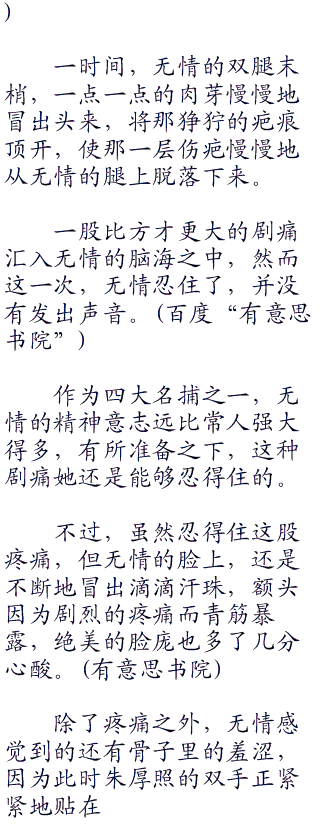 )
一时间，无情的双腿末
梢，一点一点的肉芽慢慢地
冒出头来，将那狰狞的疤痕
顶开，使那一层伤疤慢慢地
从无情的腿上脱落下来。
一股比方才更大的剧痛
汇入无情的脑海之中，然而
这一次，无情忍住了，并没
有发出声音。(百度“有意思
书院”)
作为四大名捕之一，无
情的精神意志远比常人强大
得多，有所准备之下，这种
剧痛她还是能够忍得住的。
不过，虽然忍得住这股
疼痛，但无情的脸上，还是
不断地冒出滴滴汗珠，额头
因为剧烈的疼痛而青筋暴
露，绝美的脸庞也多了几分
心酸。(有意思书院)
除了疼痛之外，无情感
觉到的还有骨子里的羞涩，
因为此时朱厚照的双手正紧
紧地贴在